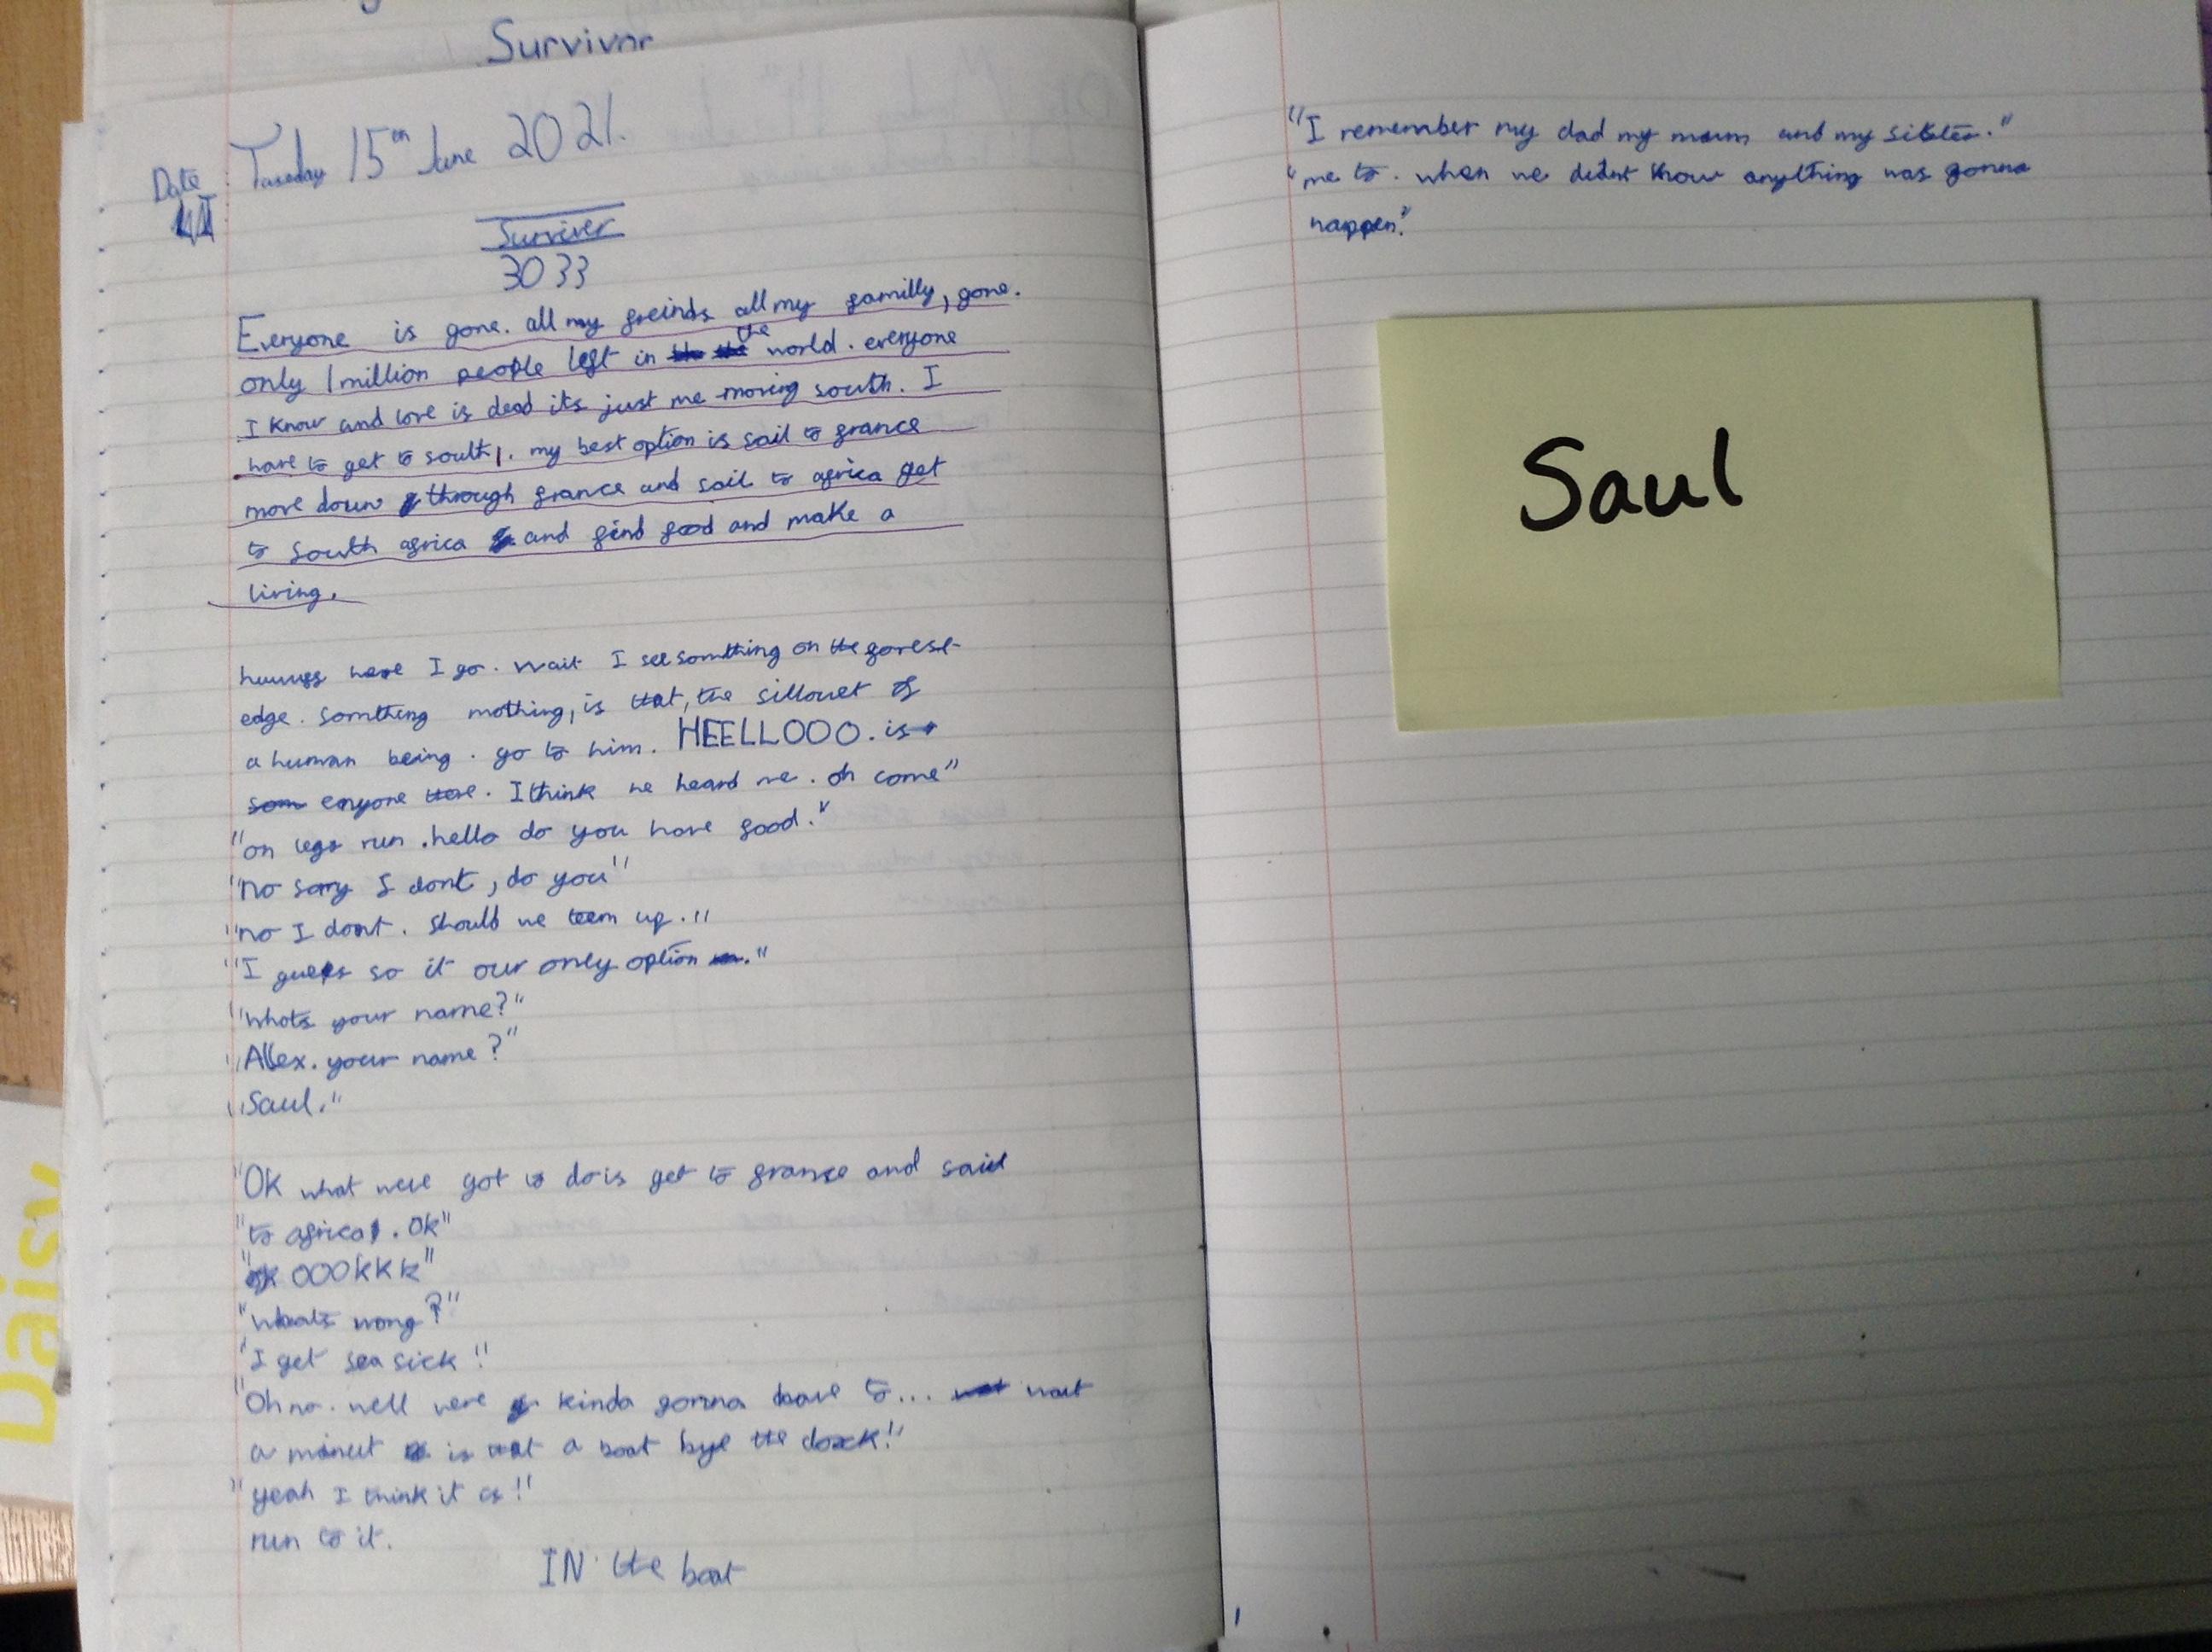 Survivor
Date : Tuesday 15th June 2021.
LI
Surviver
3033
Everyone is gone. all my freinds all my familly, gone.
only 1 million people left in the world. everyone
I know and love is dead its just me moving south. I
have to get to south. my best option is sail to france
move down through france and sail to africa get
to south africa and find food and make a
living.
huuuff here I go. wait I see somthing on the forest
edge. somthing mothing, is that, the sillouet of
a human being. go to him. HEELLOOO. is
enyone there. I think he heard me. oh come"
"on legs run. hello do you have food."
"no sorry I dont, do you"
"no I dont. should we teem up."
"I guess so it our only option."
"whats your name?"
"Allex. your name?"
"Saul."
"OK what were got to do is get to france and sail
"to africa. Ok"
"OOOKKK"
"whats wrong?"
"I get sea sick!"
"Oh no. well were kinda gonna have to... wait
a minut is that a boat bye the dock!"
"yeah I think it is!"
run to it.
IN the boat
"I remember my dad my mum and my sister."
"me to. when we didnt know anything was gonna
happen."
Saul
Daisy